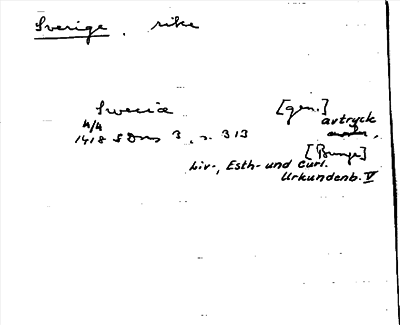 Sverige, rike
Sweciæ [gen.]
4/4 avtryck
1418 SDns 3, s. 313
[Bunge]
Liv-, Esth- und Curl.
Urkundenb. V